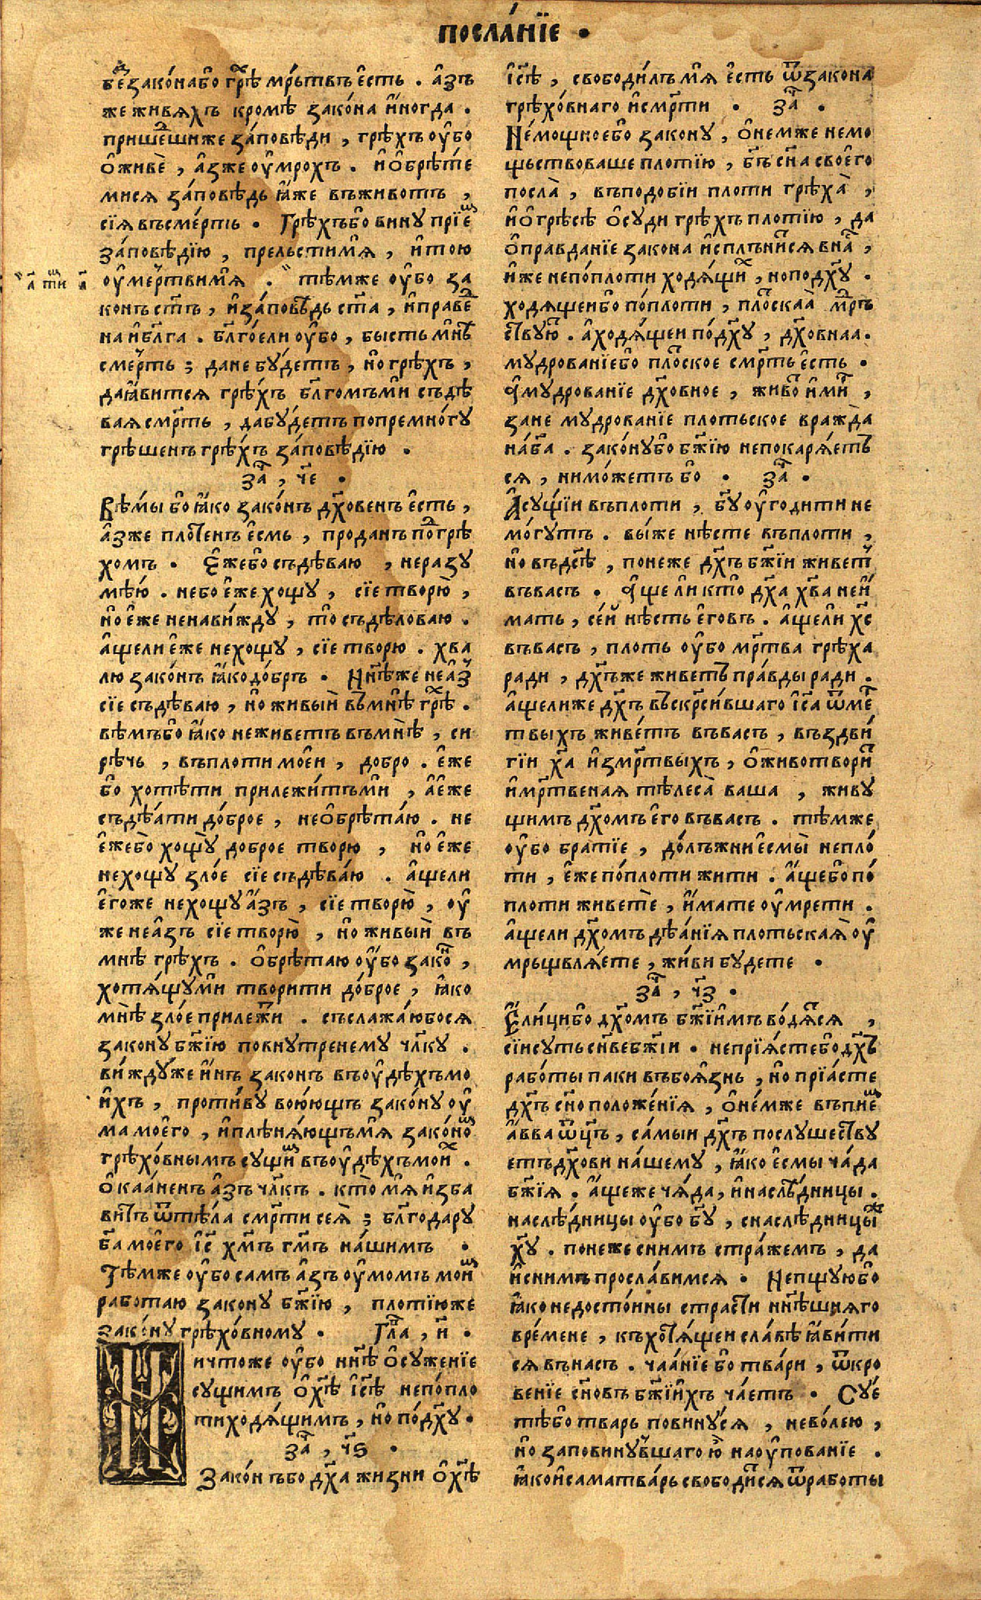 посла́нїе ·
бе́з̾ зако́набо̑ грѣ́х мр҃ьтвъ е҆́сть . а҆́зъ
же живя́хъ кромѣ̀ зако́на и҆ногда .
прише́дшиже за́повѣди , грѣ́хъ оу҆бо
о҆живѐ , а҆́зже оу҆мрохъ . и҆ о҆брѣ́те
мися за́повѣдь ꙗ҆́же въживотъ ,
сїѧ въсме́рть . Грѣ́хъбо вину прїе́мъ
за́повѣдїю , прельстимѧ , и҆ тою
оу҆ме́ртвимѧ . тѣ́мже оу҆бо за
конъ ст҃ъ , и҆за́повѣдь ст҃а , и҆праве́д
на и҆бл҃га . бл҃гоели оу҆бо , бысть мнѣ̀
сме́рть ; дане бу́детъ , но грѣ́хъ ,
даꙗ҆вится грѣ́хъ бл҃гомъми съдѣ
вая смр҃ть , дабу́детъ попремно́гу
грѣшенъ грѣ́хъ за́повѣдїю .
за҃ , ч҃е .
Вѣ́мы бо ꙗ҆́ко зако́нъ дх҃овенъ е҆́сть ,
а҆́зже пло́тенъ е҆́смь , проданъ по́дгрѣ
хомъ . Е҆́жебо съдѣ́ваю , нера́зу
мѣ́ю . небо е҆́же хощу , сїе творю̀ ,
но е҆́же ненави́жду , то съдѣ́ловаю .
а҆́щели е҆́же не хощу , сїе творю . хва
лю зако́нъ ꙗ҆́кодо́бръ . Нн҃ѣже неа҆́з
сїе съдѣ́ваю , но живы́й въмнѣ̀ грѣ́х .
вѣмъбо ꙗ҆́ко неживетъ въмнѣ̀ , си
рѣчь , въплоти моеи , добро . е҆́же
бо хотѣ́ти прилежи́тъми , а҆е҆́же
съдѣ́ати до́брое , нео҆брѣта́ю . не
е҆́жебо хощу̀ доброе творю , но е҆́же
нехощу зло́е сїе съдѣва́ю . а҆́щели
е҆го́же нехощу а҆́зъ , сїе творю̀ , оу҆
же неа҆́зъ сїе творю̀ , но живы́й въ
мнѣ̀ грѣ́хъ . О҆брѣ́таю оу҆бо зако́н ,
хотя́щуми творити до́брое , ꙗ҆́ко
мнѣ̀ зло́е прилежи́т . съслажа́юбося
закону бж҃їю повнутренему чл҃ку .
ви́ждуже и҆́нъ законъ въоу҆́дѣхъ мо
и҆́хъ , проти́ву воюющъ зако́ну оу҆
ма мое́го , и҆плѣня́ющъмѧ зако́но́м
грѣхо́внымъ сущи́м въоу҆́дѣхъ мои́х .
О҆каа́ненъ а҆́зъ чл҃къ . кто̀ мѧ и҆зба
витъ ѿтѣ́ла смр҃ти сеѧ̀ ; бл҃годару
ба҃ моего і҆с҃ хм҃ъ гм҃ъ на́шимъ .
Тѣ́мже оу҆бо самъ а҆́зъ оу҆момъ мои́м
работаю закону бж҃їю , плотїюже
зако́ну грѣхо́вному . Гл҃а , и҃ .
Ничтоже оу҆бо нн҃ѣ о҆суженїе
сущимъ о҆хѣ҃ і҆сѣ҃ непо́пло
ти ходя́щимъ , но по́дх҃у .
за҃ , ч҃ѕ .
Зако́нъбо дх҃а жизни о҆хѣ҃
і҆сѣ҃ , свободилъ мѧ е҆́сть ѿзакона
грѣхо́внаго и҆смр҃ти . за҃ .
Не́мощноебо закону , о҆не́мже немо
щьствоваше плотїю , бг҃ъ сн҃а свое́го
посла̀ , въподобїи плоти грѣха̀ ,
и҆о҆грѣсѣ̀ о҆суди грѣ́хъ плотїю , да
о҆правданїе закона и҆сплъни́тся в на́с ,
и҆́же непо́плоти ходя́щи́х , но по́дх҃у .
ходя́щеибо по́плоти , пло́тскаа мр҃ъ
ствую́т . а҆ходя́щеи по́дх҃у , дх҃овнаа .
мудрованїебо пло́тское смр҃ть е҆́сть .
а҆мудрованїе дх҃овное , живо́т и҆ ми́р ,
зане мудрованїе плотьское вражда
на́ба҃ . зако́нубо бж҃їю непокаря́етъ
ся , ниможетъ бо . за҃ .
А҆сущїи въплоти , бг҃у оу҆годити не
мо́гутъ . выже нѣсте въплоти ,
но въдс҃ѣ , понеже дх҃ъ бж҃їи живет
въвасъ . а҆́ще ли кто̀ дх҃а хв҃а неи҆́
мать , се́й нѣ́сть е҆говъ . а҆́щели хс҃
въвасъ , плоть оу҆бо мр҃тва грѣха
ради , дх҃ъже живетъ пра́вды ради .
а҆́щелиже дх҃ъ въскр҃си́вшаго і҆са҃ ѿме́р
твыхъ живе́тъ въвасъ , въздви
гїи ха҃ и҆змр҃твыхъ , о҆животвори́т
и҆мр҃твеная тѣлеса̀ ваша , живу
щимъ дх҃омъ е҆го въвасъ . тѣ́мже
оу҆бо братїе , до́лъжни е҆смы̀ непло́
ти , е҆́же по́плоти жити . а҆́щебо по́
плоти живетѐ , и҆́мате оу҆мрети .
а҆́щели дх҃омъ дѣа́нїя плотьская̀ оу҆
мрьщвля́ете , жи́ви будете .
за҃ , ч҃з .
Е҆ли́цибо дх҃омъ бж҃їимъ во́дятся ,
сїи суть сн҃ве бж҃їи . непрїя́стебо дх҃ъ
рабо́ты паки въбоя́знь , но прїасте
дх҃ъ сн҃о положе́нїя , о҆не́мже въпие́м
а҆́вва ѿц҃ъ , са́мыи дх҃ъ послушеству
етъ дх҃ови на́шему , ꙗ҆́ко е҆смы ча́да
бж҃їя . а҆́щеже чя́да , и҆наслѣ́дницы .
наслѣ́дницы оу҆бо бг҃у , снаслѣ́дницыже
ху҃ . понеже сни́мъ стра́жемъ , да
и҆сни́мъ просла́вимся . Непщуюбо
ꙗ҆́ко недосто́йны страсти нн҃ѣшняго
вре́мене , къхотя́щеи сла́вѣ ꙗ҆ви́ти
ся въна́съ . чаа́нїе бо тва́ри , ѿкро
венїе сн҃овъ бж҃їихъ ча́етъ . Суе
тѣ̀бо тварь повину́ся , нево́лею ,
но заповину́вшаго ю҆̀ наоу҆пованїе .
ꙗ҆́кои саматва́рь свободи́тся ѿработы